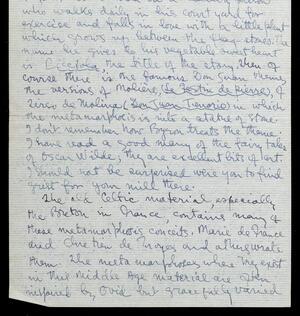 who walks daily in his court yard for
exercise and falls in love with a little plant
which grows up between the flag stones. The
name he gives to his vegetable sweetheart
is the title of the story. Then of
course there is the famous Don Juan theme,
the versions of Molière, (Le Festin de pierre), of
Tirso de Molina (Don Juan Tenorio) in which
the metamorphosis is into a statue of stone.
I don't remember how Byron treats the theme.
I have read a good many of the fairy tales
of Oscar Wilde; they are excellent bits of art.
I should not be surprised were you to find
grist for your mill there.
The old Celtic material, especially
the Breton in France, contains many of
these metamorphosis conceits. Marie de France
and Chrétien de Troyes and others wrote
them. The metamorphoses where they exist
in this Middle Age material are often
inspired by Ovid but gracefully varied